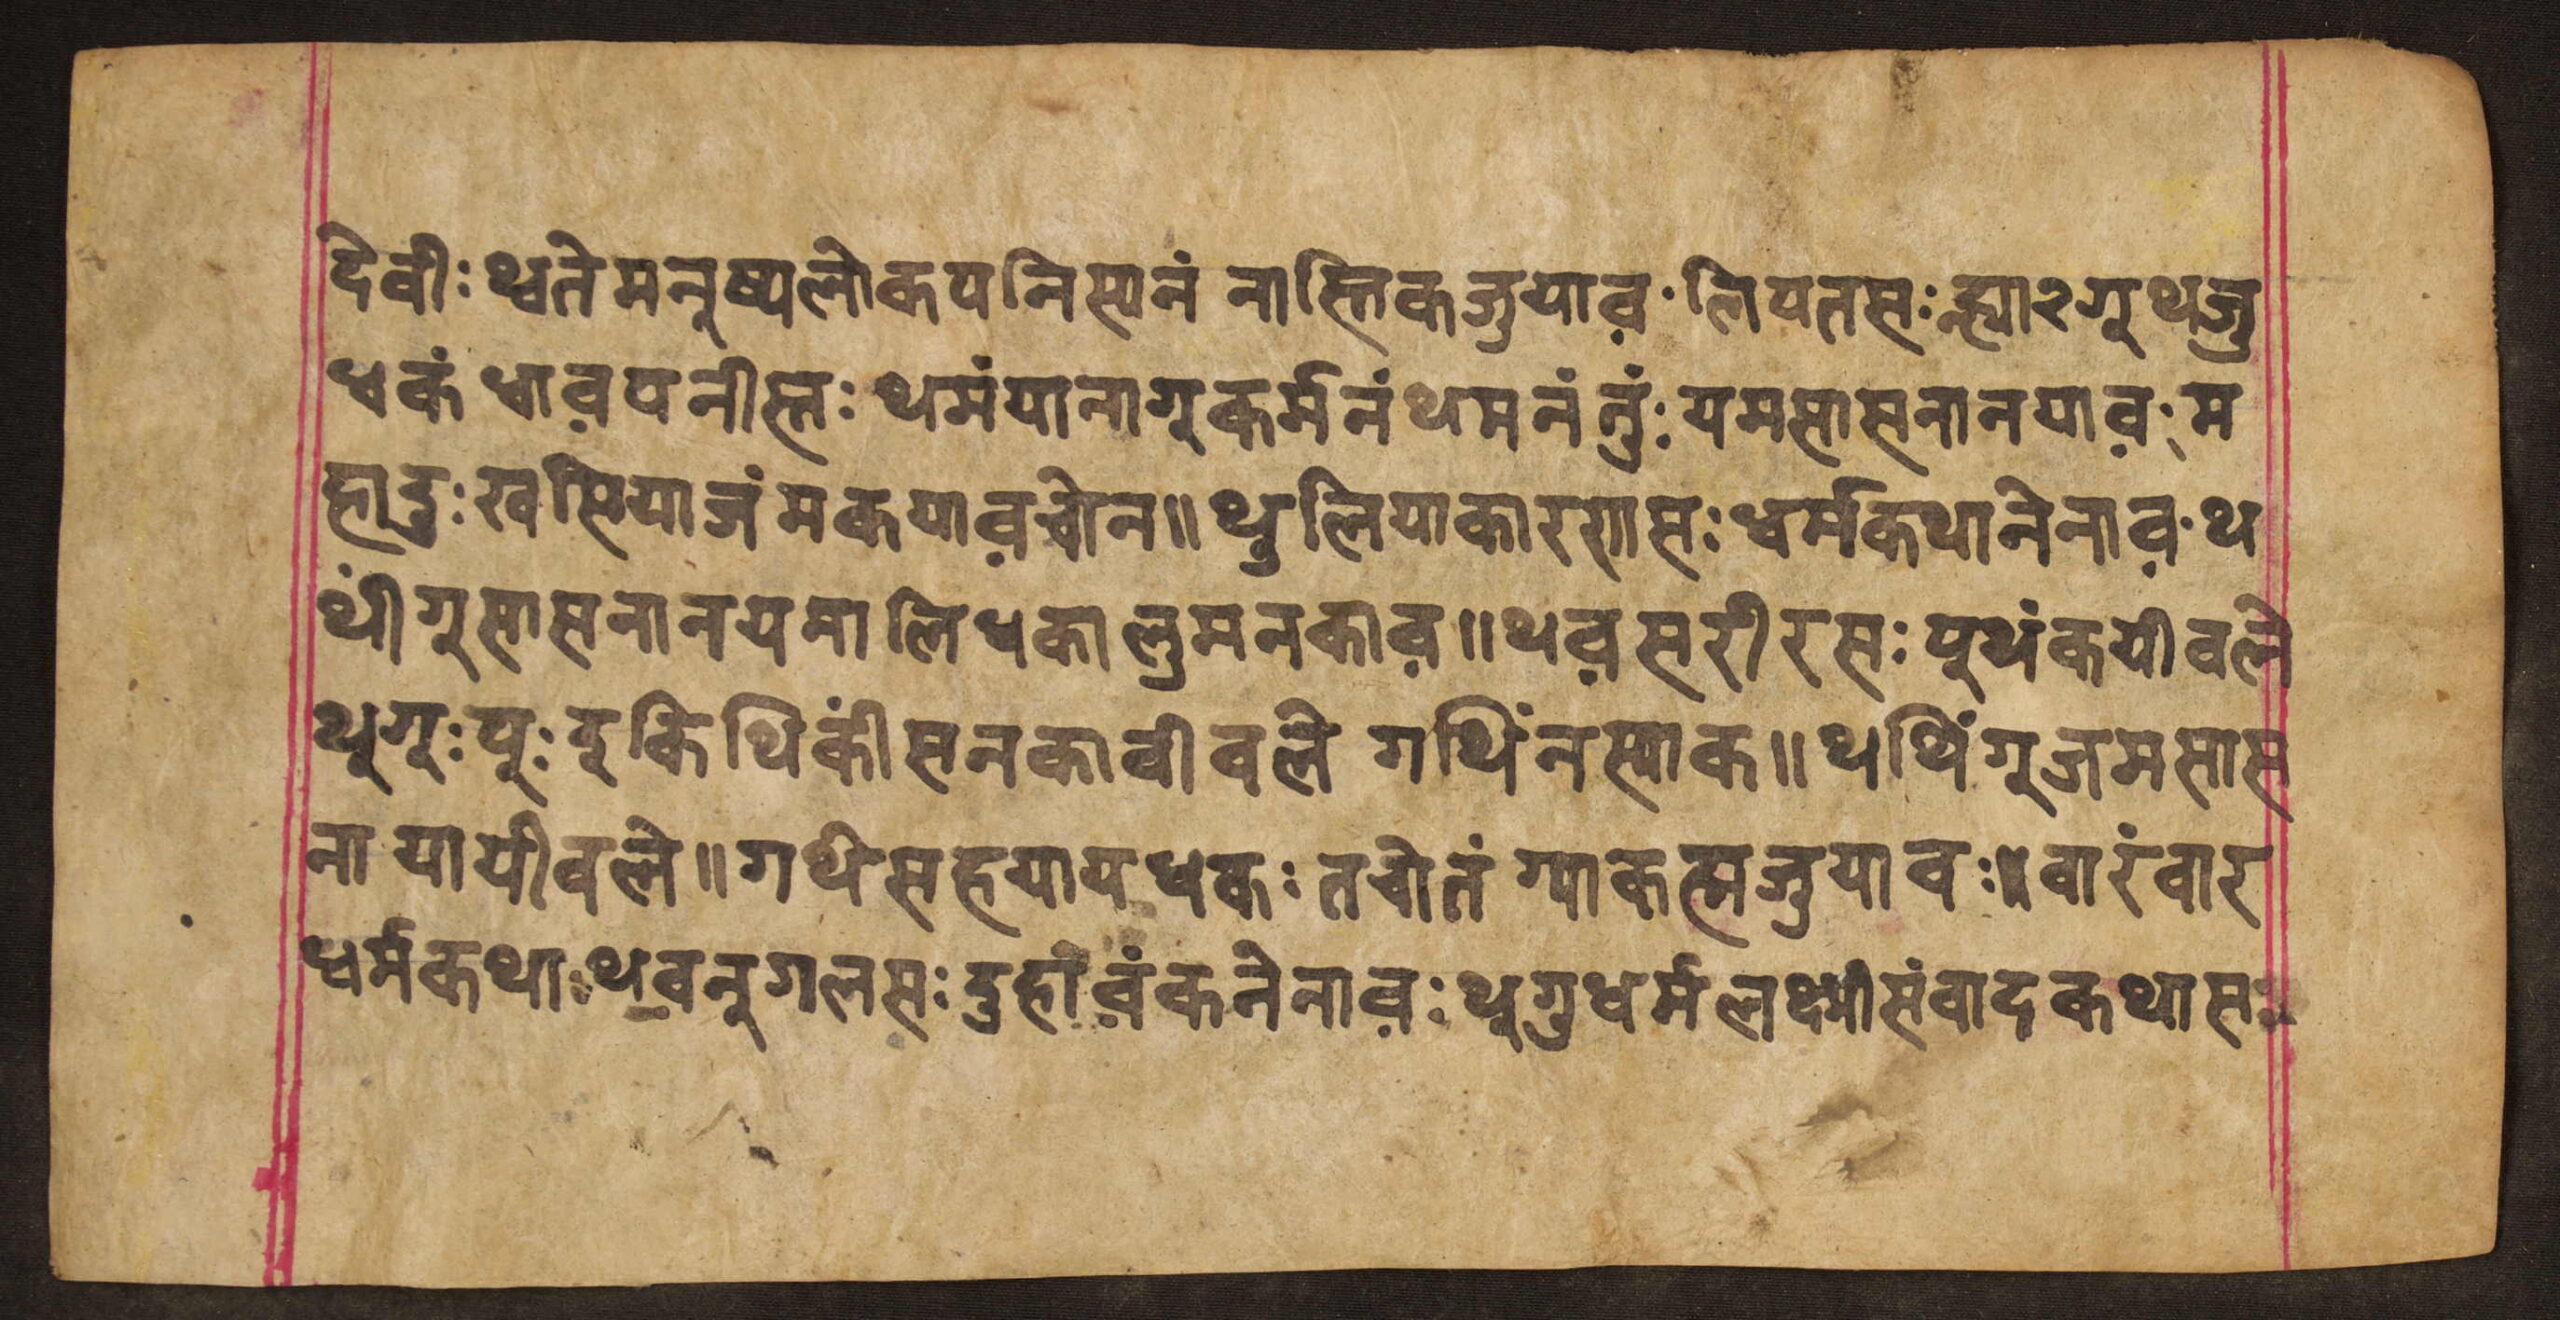 देवीः थ्वते मनूष्यलोकपनिस्यनं नास्तिकजुयाव़·लिपतसः ह्मा२गू थजु
धकं धाव़पनीस्तः थमंयानागू कर्मनं थमनं नुं़ः यमसासनानयाव़ः म
हादुःखसियाजंमकयाव़चोन॥ थुलियाकारणसः धर्मकथानेनाव़·थ
थीं गूसासनानयमालिधका लुमनकाव़॥ थव़सरीरसः पूथंकयीवले
थूगूः पूः दूकिथिंकींसनकावीवले गथिंनस्याक॥ थथिंगू जमसास
नायायीवले॥ गथेसहयायधकः तचोतं ग्याकह्मजुयावः वारंवार
धर्मकथाः थव़नूगलसः दुहांव़ंकनेनाव़ः थूगुधर्मलक्ष्मीसंवादकथासः